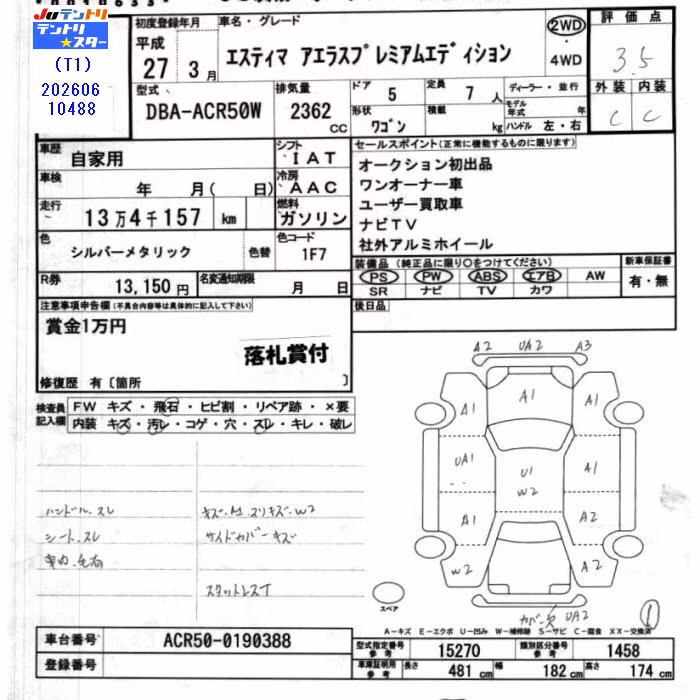 JUテントリ
テントリ★スター
(T1)
202606
10488
初度登録年月
平成
27年 3月
車名・グレード
エスティマ アエラスプレミアムエディション
2WD
・
4WD
評価点
3.5
外装 内装
C C
型式
DBA-ACR50W
排気量
2362 CC
ドア 5
定員 7人
形状 ワゴン
積載 kg
ディーラー・並行
モデル年式 年
ハンドル 左・右
車歴 自家用
シフト IAT
車検 年 月( 日)
冷房 AAC
走行 13万4千157 km
燃料 ガソリン
色 シルバーメタリック 色替
色コード 1F7
R券 13,150円
名変通知期限 月 日
セールスポイント(正常に機能するものに限ります)
オークション初出品
ワンオーナー車
ユーザー買取車
ナビTV
社外アルミホイール
装備品(純正品に限り○をつけてください)
PS PW ABS エアB AW
SR ナビ TV カワ
新車保証書
有・無
後日品
注意事項申告欄(不具合内容等は具体的に記入して下さい)
賞金1万円
落札賞付
修復歴 有〔箇所 〕
検査員記入欄
FW キズ・飛石・ヒビ割・リペア跡・×要
内装 キズ・汚レ・コゲ・穴・スレ・キレ・破レ
ハンドル.スレ
シート.スレ
キズ.A1.スリキズ.W2
サイドカバーキズ
スタットレスT
A2 UA2 A3
A1
A1 A1
UA1 A1
U1
W2
A1 A2
W2 A2
UA2
スペア
1
A-キズ E-エクボ U-凹み W-補修跡 S-サビ C-腐食 XX-交換済
車台番号 ACR50-0190388
登録番号
型式指定番号 参考 15270
類別区分番号 参考 1458
車庫証明用 参考 長さ 481 cm 幅 182 cm 高さ 174 cm